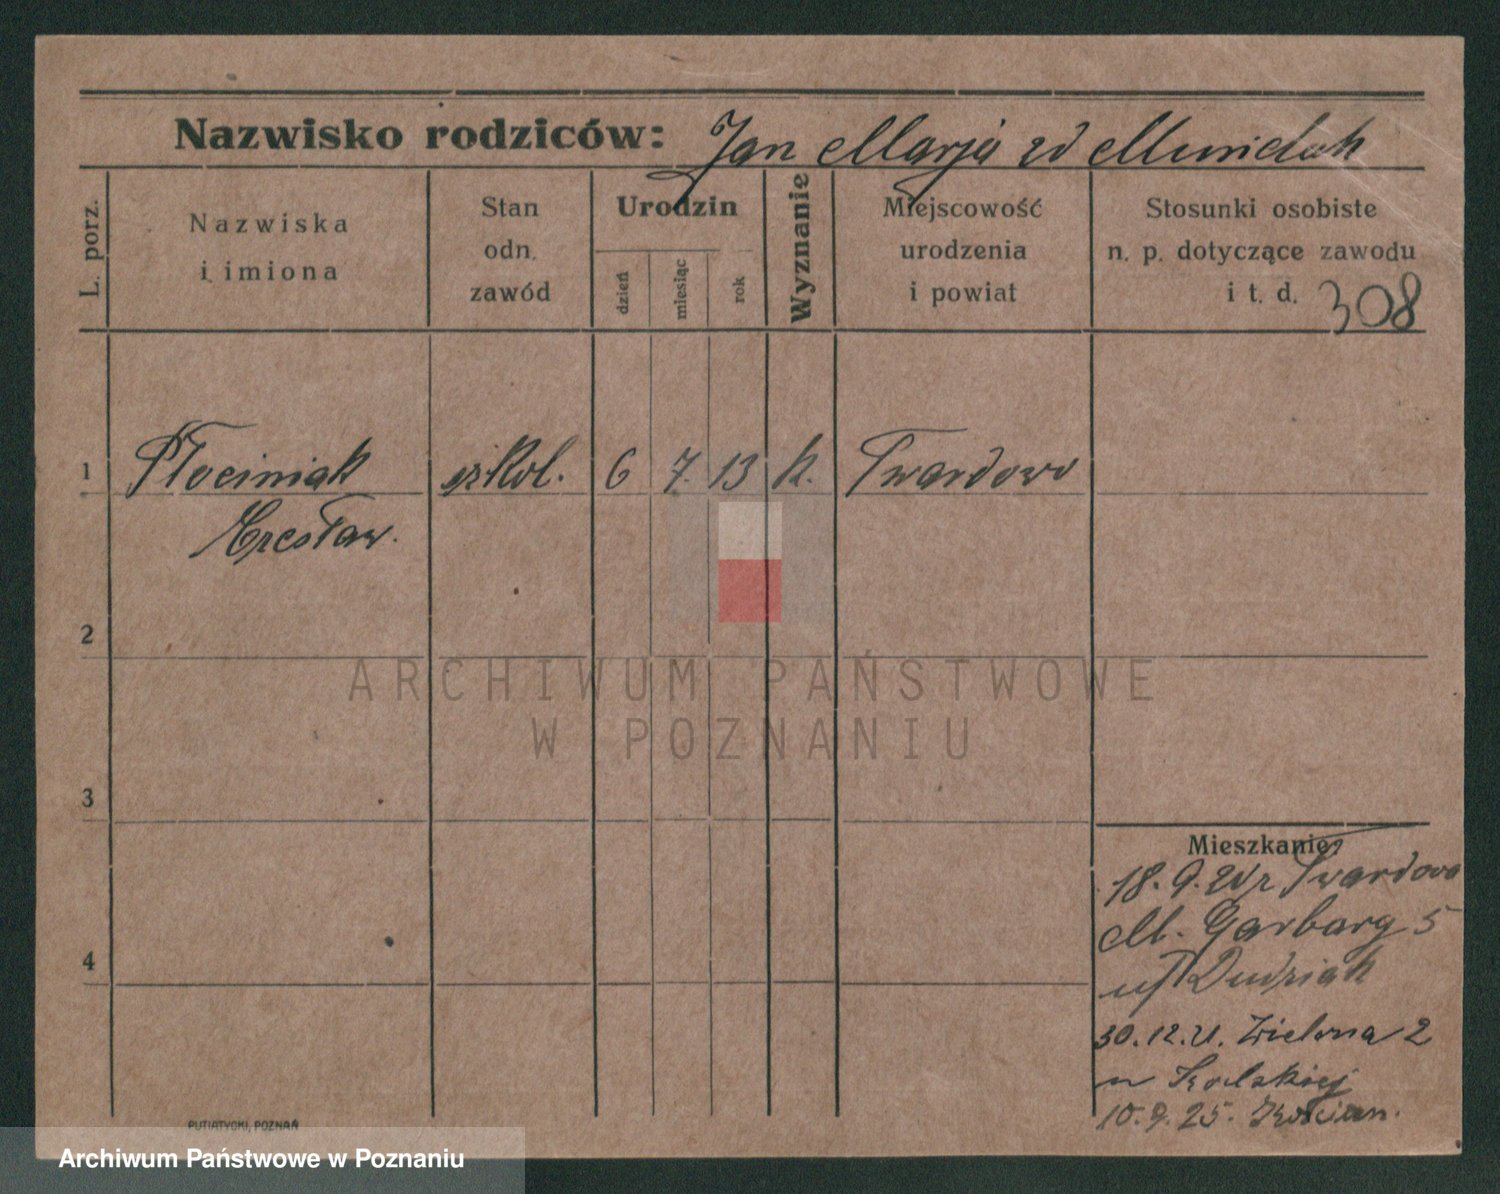 Nazwisko rodziców: Jan Marja zd
L. porz.
Nazwiska
i imiona
Stan
odn.
zawód
Urodzin
dzień
miesiąc
rok
Wyznanie
Miejscowość
urodzenia
i powiat
Stosunki osobiste
n. p. dotyczące zawodu
i t. d. 308
1 Płociniak szkol. 6 7. 13 k. Twardowo
Czesław.
2
ARCHIWUM PAŃSTWOWE
W POZNANIU
3
4
Mieszkanie:
18. 9. 21 z Twardowa
M. Garbary 5
Dudziak
30. 12. 21. Zielona 2
10. 9. 25. Kościan.
PUTIATYCKI, POZNAŃ
Archiwum Państwowe w Poznaniu